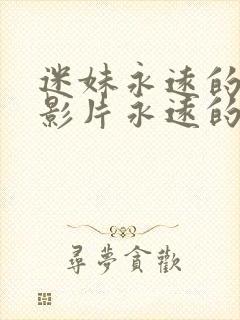 迷妹永远的
影片永远的
尋夢貪歡